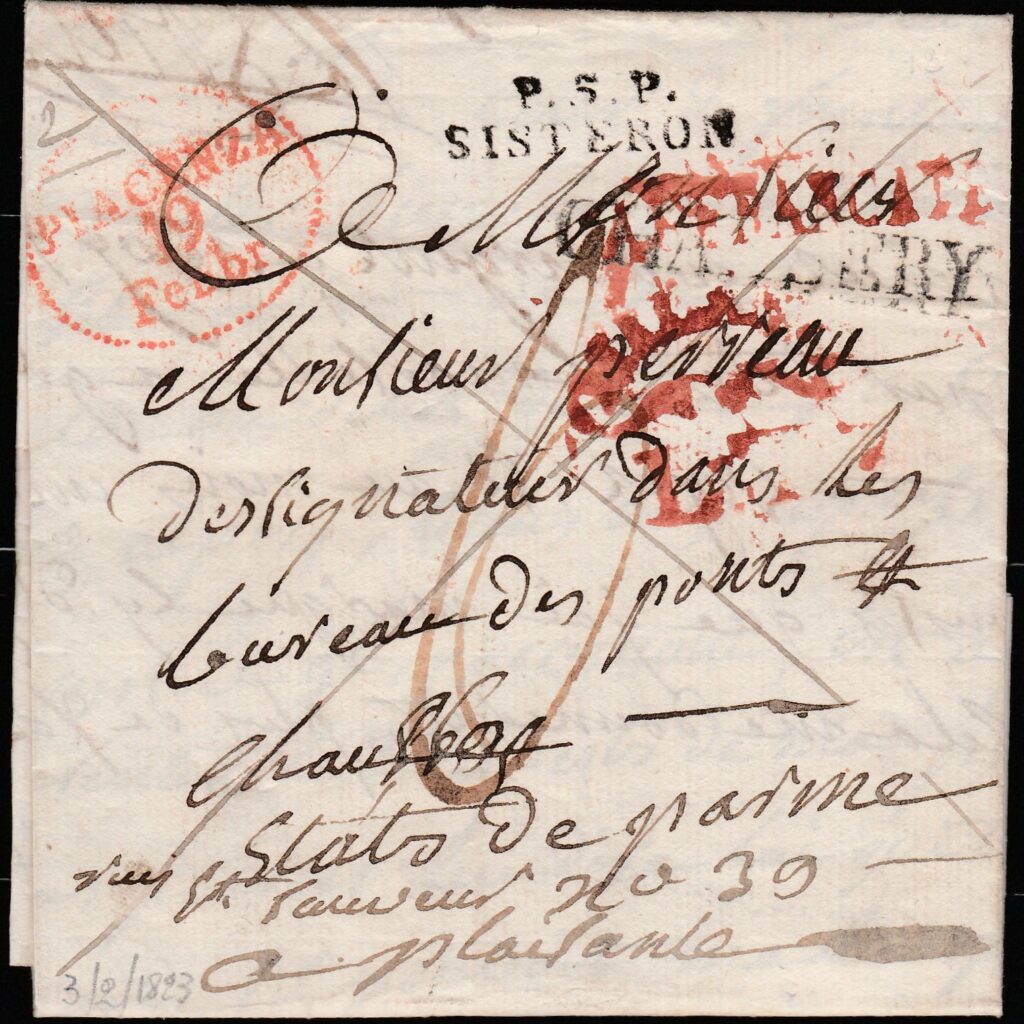 P. S. P.
SISTERON
PIACENZA
19
Febbr
CHAMBERY
A Monsieur
Monsieur perreau
dessignateur dans les
bureau des ponts et
chaussée
Etats de parme
rue St. Sauveur no 39
a plaisante
L T
3/2/1823